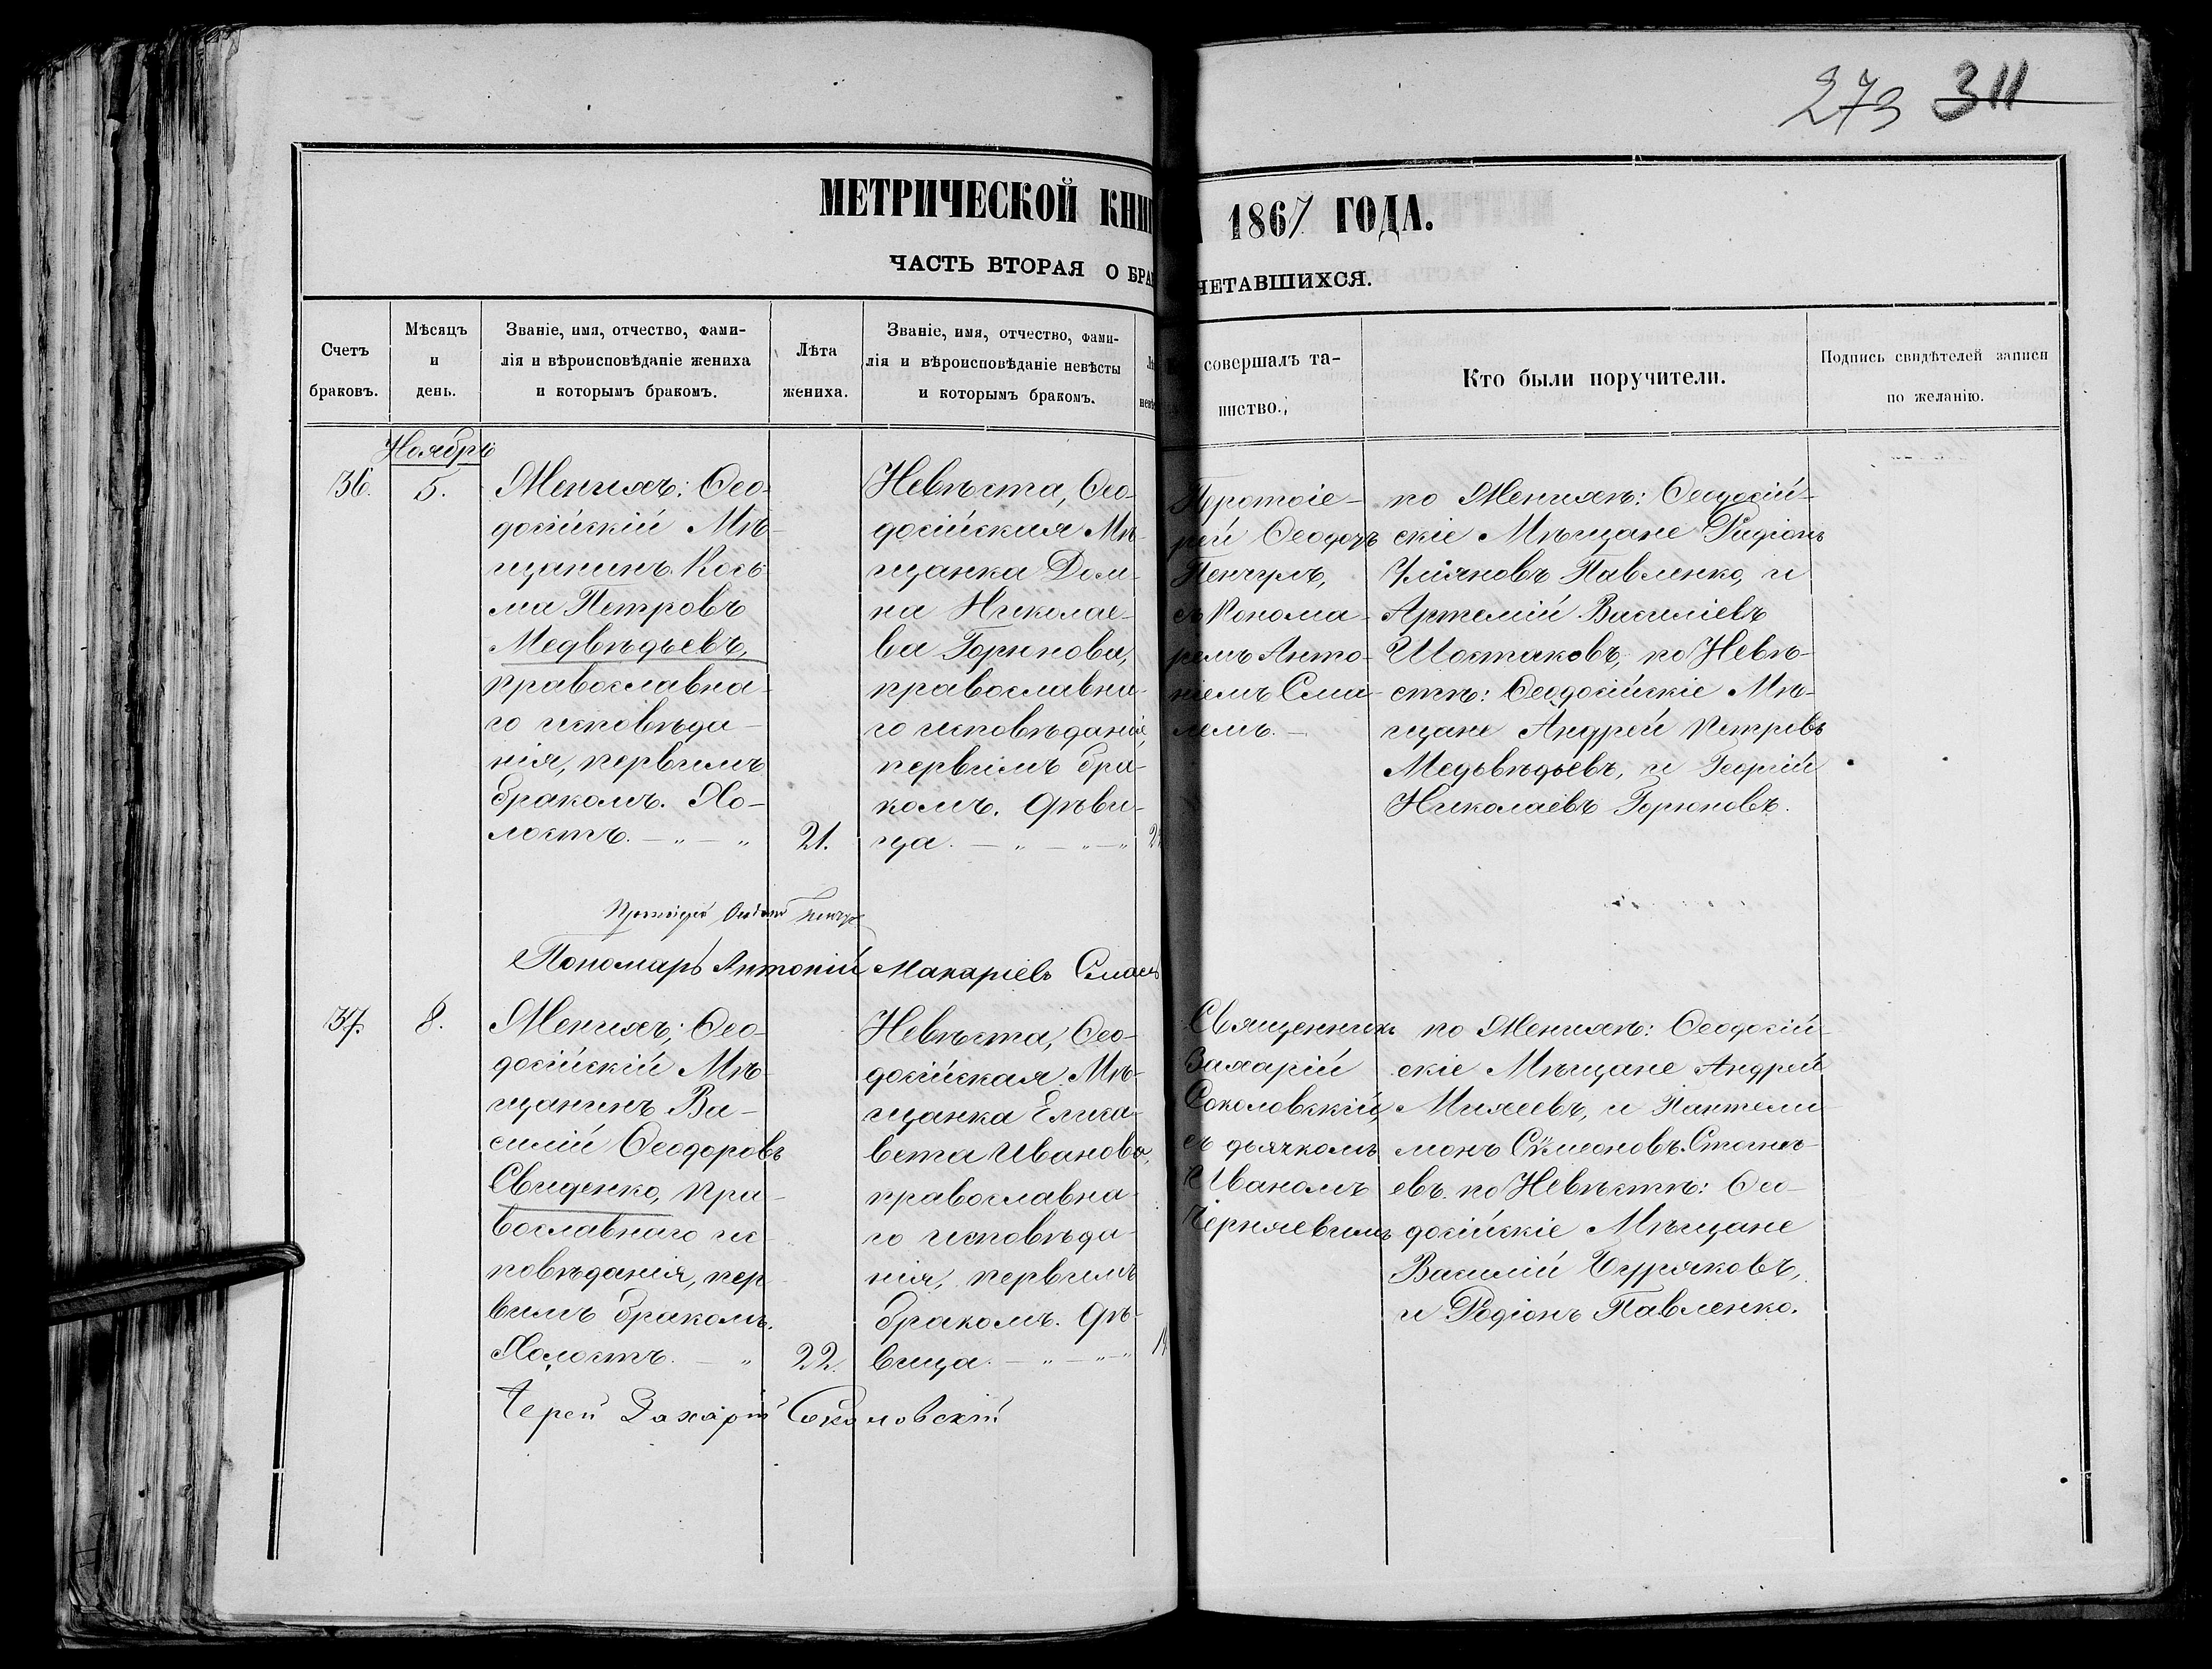 273 311
МЕТРИЧЕСКОЙ КНИГ
1867 ГОДА.
ЧАСТЬ ВТОРАЯ О БРА
ЧЕТАВШИХСЯ.
Счетъ
браковъ.
Мѣсяцъ
и
день.
Званіе, имя, отчество, фами-
лія и вѣроисповѣданіе жениха
и которымъ бракомъ.
Лѣта
жениха.
Званіе, имя, отчество, фами-
лія и вѣроисповѣданіе невѣсты
и которымъ бракомъ.
совершалъ та-
инство.
Кто были поручители.
Подпись свидѣтелей записи
по желанію.
Ноябрь
36.
5.
Женихъ: Ѳео-
досійскій Мѣ-
щанинъ Кось-
ма Петровъ
Медвѣдьевъ,
православна-
го исповѣда-
нія, первымъ
бракомъ. Хо-
лостъ. — „ — „
21.
Невѣста, Ѳео-
досійская Мѣ-
щанка Дом-
на Николае-
ва Горюнова,
православна-
го исповѣданія,
первымъ бра-
комъ. Дѣви-
ца. — „ — „ — „
2
Протоіе-
рей Ѳеодоръ
съ Понома-
ремъ Анто-
ніемъ Сма-
лемъ. —
по Женихѣ: Ѳеодосій-
скіе Мѣщане Радіонъ
Уліяновъ Павленко, и
Артемій Василіевъ
Шостаковъ, по Невѣ-
стѣ: Ѳеодосійскіе Мѣ-
щане Андрей Петровъ
Медьвѣдьевъ, и Георгій
Николаевъ Горюновъ.
Протоіерей
Пономарь Антоній Макаріевъ
37.
8.
Женихъ; Ѳео-
досійскій Мѣ-
щанинъ Ва-
силій Ѳеодоровъ
Свиденко, пра-
вославнаго ис-
повѣданія, пер-
вымъ бракомъ.
Холостъ. — „
22.
Невѣста, Ѳео-
досійская Мѣ-
щанка Елиса-
вета Иванова,
православна-
го исповѣда-
нія, первымъ
бракомъ. Дѣ-
вица. — „ — „ — „
1
Священникъ
Захарій
Соколовскій,
съ дьячкомъ
Иваномъ
Черняевымъ
по Женихѣ: Ѳеодосій-
скіе Мѣщане Андрей
Михеевъ, и Пантели-
монъ Сѵмеоновъ
евъ. по Невѣстѣ: Ѳео-
досійскіе Мѣщане
Василій Чуряковъ,
и Родіонъ Павленко.
Іерей Захарій Соколовскій